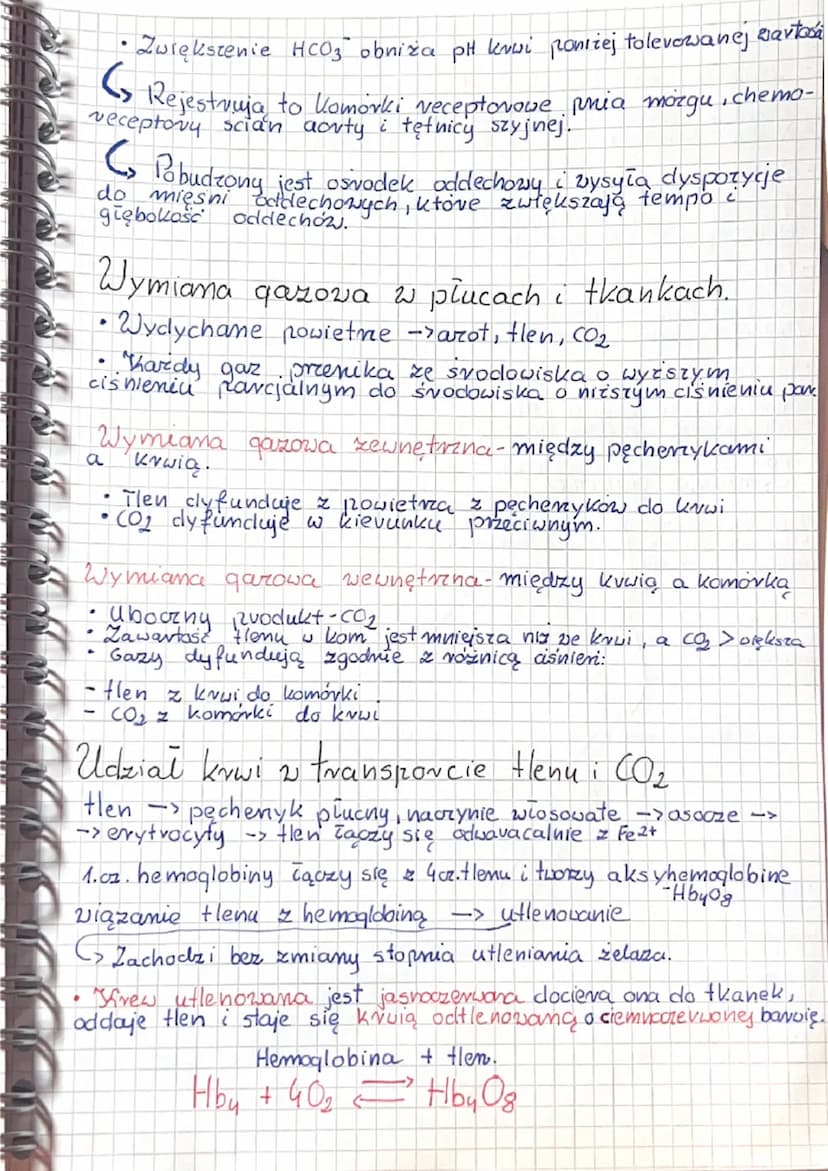 • Zwiększenie HCO3⁻ obniża pH krwi poniżej tolerowanej wartości
↳ Rejestrują to komórki receptorowe pnia mózgu, chemo-
receptory ścian aorty i tętnicy szyjnej.
↳ Pobudzony jest ośrodek oddechowy i wysyła dyspozycje
do mięśni oddechowych, które zwiększają tempo i
głębokość oddechów.
Wymiana gazowa w płucach i tkankach.
• Wydychane powietrze -> azot, tlen, CO2
• Każdy gaz przenika ze środowiska o wyższym
ciśnieniu parcjalnym do środowiska o niższym ciśnieniu parc
Wymiana gazowa zewnętrzna - między pęcherzykami
a krwią.
• Tlen dyfunduje z powietrza z pęcherzyków do krwi
• CO2 dyfunduje w kierunku przeciwnym.
Wymiana gazowa wewnętrzna - między krwią a komórką
• Uboczny produkt - CO2
• Zawartość tlenu w kom jest mniejsza niż we krwi, a CO2 > większa
• Gazy dyfundują zgodnie z różnicą ciśnień:
- tlen z krwi do komórki
- CO2 z komórki do krwi
Udział krwi w transporcie tlenu i CO2
tlen -> pęcherzyk płucny, naczynie włosowate -> osocze ->
-> erytrocyty -> tlen łączy się odwracalnie z Fe2+
1.cz. hemoglobiny łączy się z 4cz. tlenu i tworzy aksyhemoglobine
- Hb4O8
wiązanie tlenu z hemoglobiną -> utlenowanie
↳ Zachodzi bez zmiany stopnia utleniania żelaza.
• Krew utlenowana jest jasnoczerwona dociera ona do tkanek,
oddaje tlen i staje się krwią odtlenowaną o ciemnoczerwonej barwie.
Hemoglobina + tlen.
Hb4 + 4O2 ⇌ Hb4O8